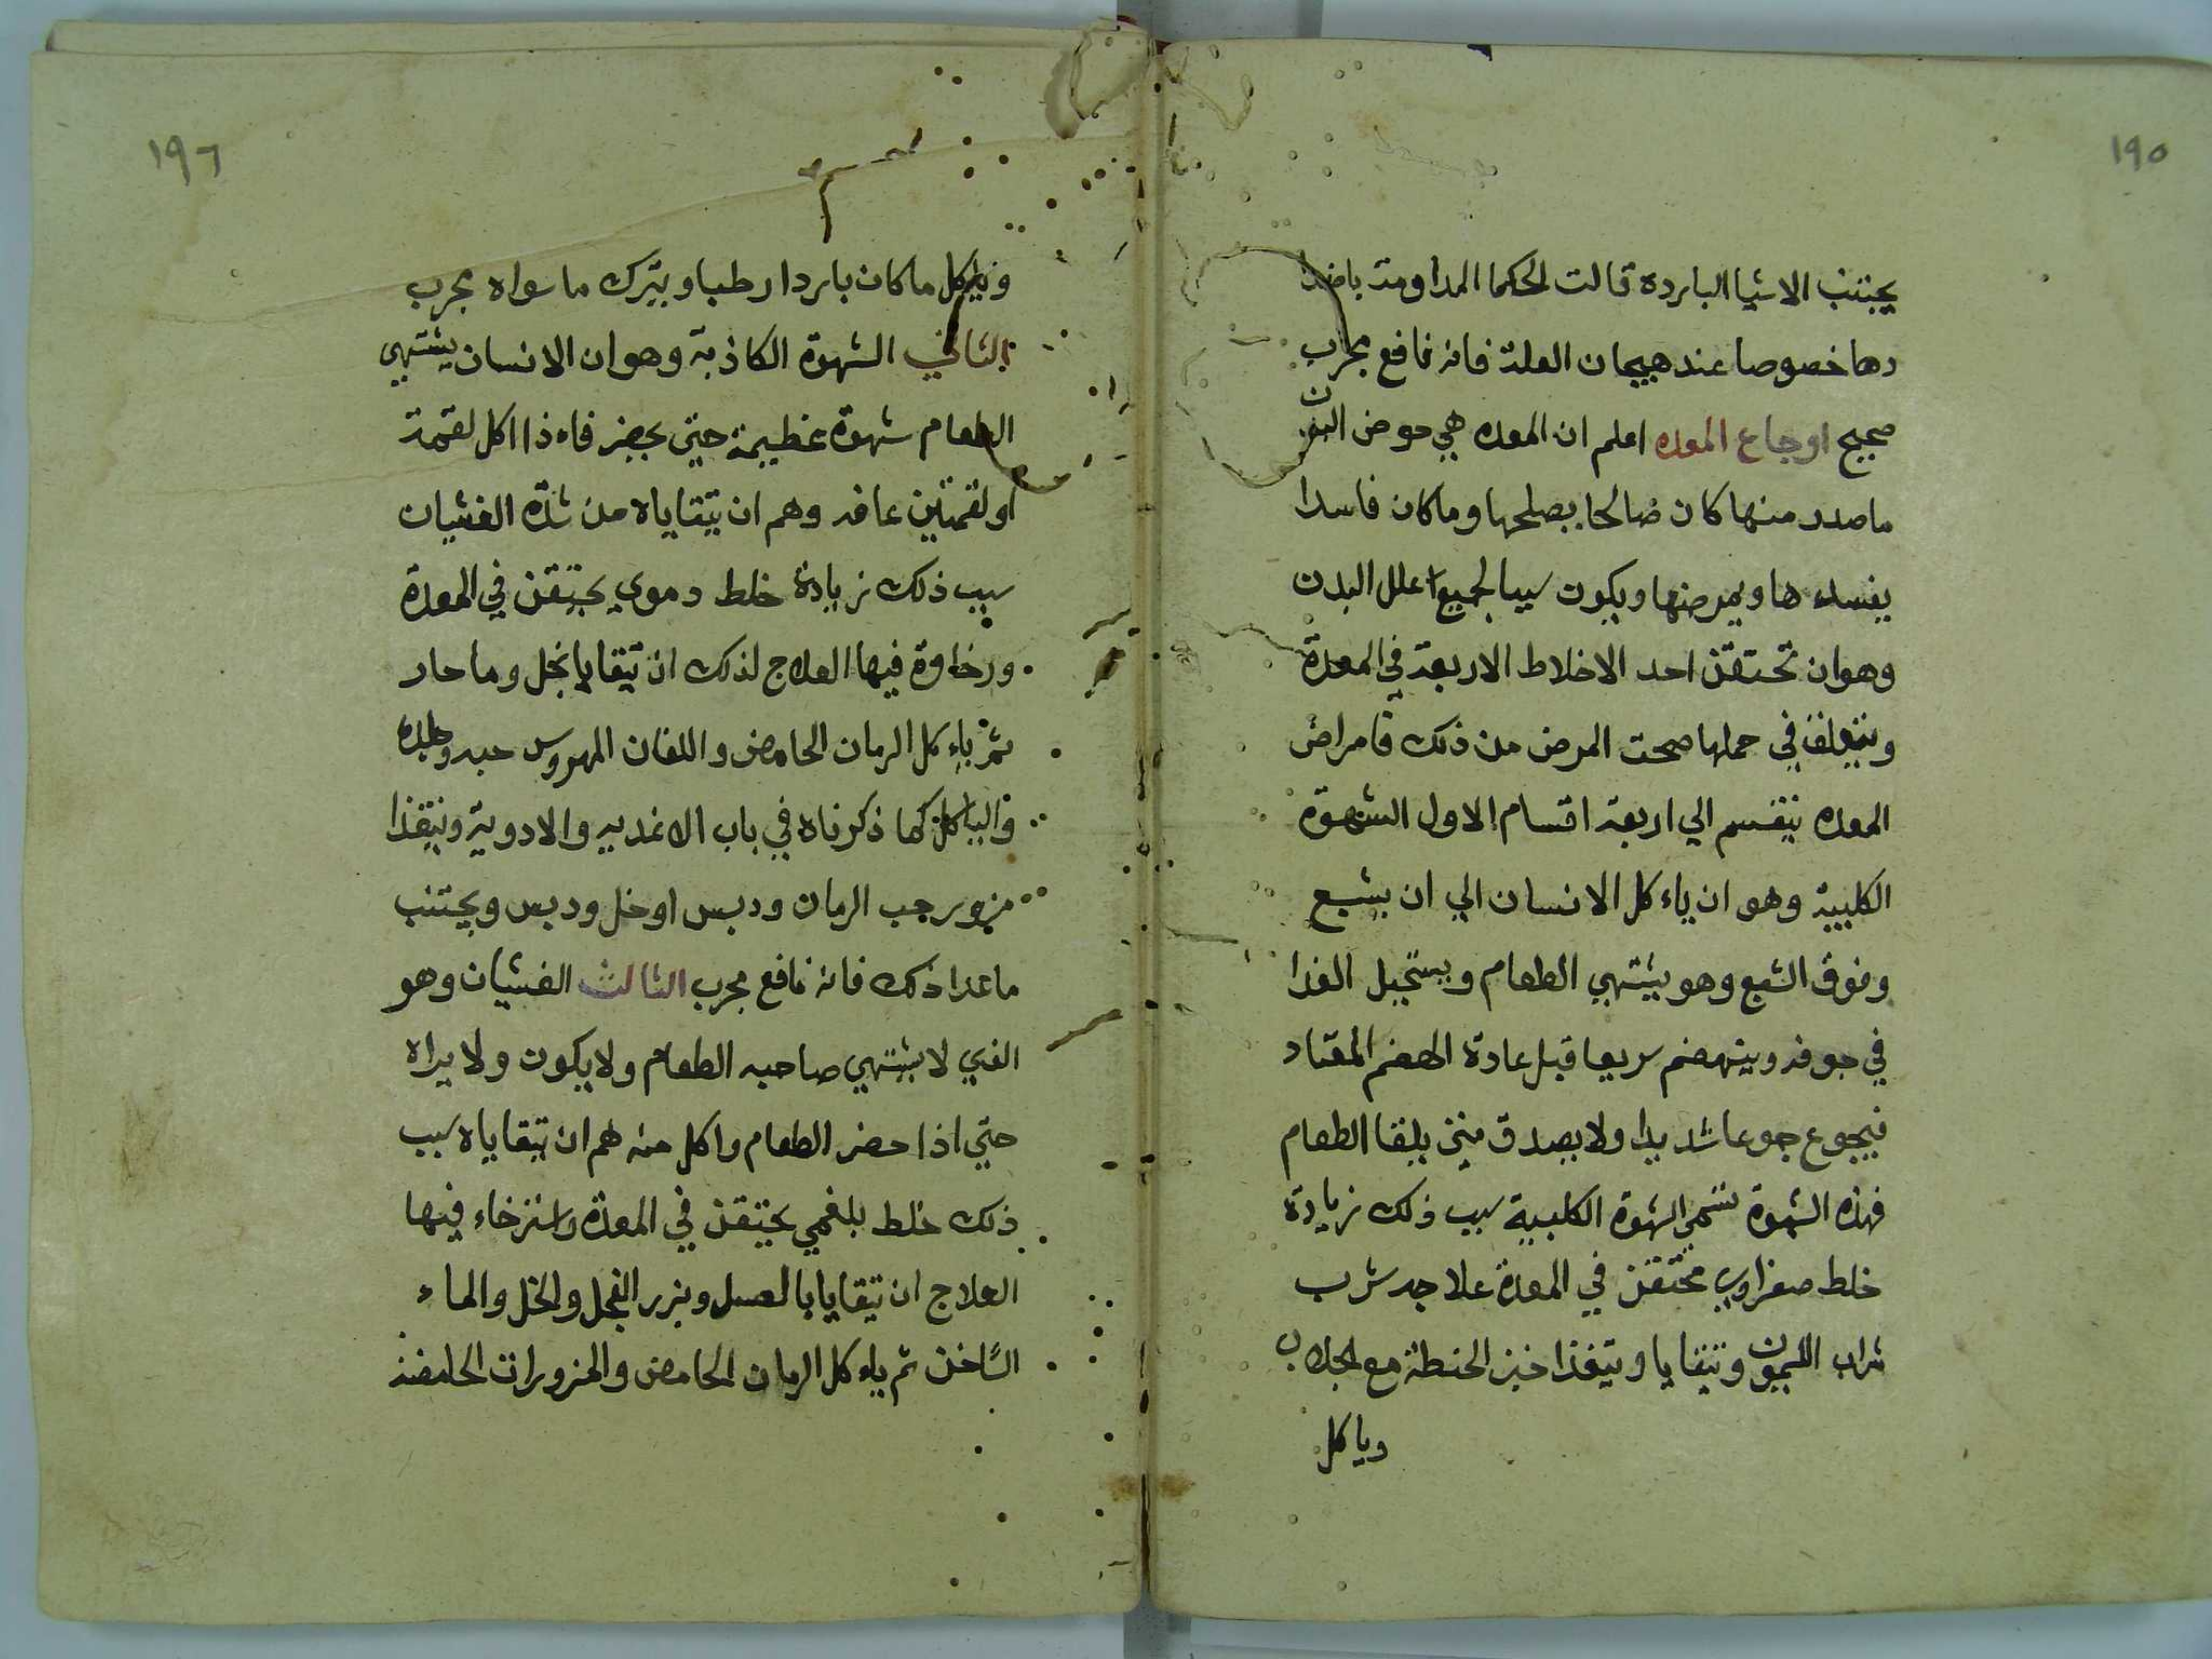 ١٩٥
يجتنب الاشيا الباردة قالت الحكما المداومة باضدا
دها خصوصا عند هيجان العلة فانه نافع مجرب
صحيح اوجاع المعده اعلم ان المعده هي حوض البدن
ماصدر منها كان صالحا يصلحها وماكان فاسدا
يفسدها ويمرضها ويكون سببا لجميع اعلل البدن
وهوان تحتقن احد الاخلاط الاربعة في المعدة
في حملها صحت المرض من ذلك فامراض
المعده تنقسم الي اربعة اقسام الاول الشهوة
الكلبية وهو ان ياءكل الانسان الي ان يشبع
وفوق الشبع وهو يشتهي الطعام ويستحيل الغدا
في جوفه وينهضم سريعا قبل عادة الهضم المعتاد
فيجوع جوعا شديدا ولا يصدق متي يلقا الطعام
فهذه الشهوة تسمي الشهوة الكلبية سبب ذلك زيادة
خلط صفراوي محتقن في المعدة علاجه شرب
شراب الليمون ويتقايا ويتغذا خبز الحنطة مع الجلاب
وياكل
١٩٦
وياكل ماكان باردا رطبا ويترك ماسواه مجرب
الثاني الشهوة الكاذبة وهوان الانسان يشتهي
الطعام شهوة عظيمة حتي يحضر فاءذا اكل لقمة
اولقمتين عافه وهم ان يتقاياه من شدة الغشيان
سبب ذلك زيادة خلط دموي يحتقن في المعدة
ورخاوة فيها العلاج لذلك ان يتقايا بخل وما حار
ثم ياءكل الرمان الحامض واللفان المهروس حبه وجلده
والياكل كما ذكرناه في باب الاغديه والادوية ويتغذا
مزور حب الرمان ودبس اوخل ودبس ويجتنب
ماعدا ذلك فانه نافع مجرب الثالث الغشيان وهو
الذي لا يشتهي صاحبه الطعام ولا يكون ولا يراه
حتي اذا حضر الطعام واكل منه هم ان يتقاياه سبب
ذلك خلط بلغمي يحتقن في المعدة واسترخاء فيها
العلاج ان يتقايا بالعسل وبزر الفجل والخل والماء
السّاخن ثم ياءكل الرمان الحامض والمزورات الحامضة